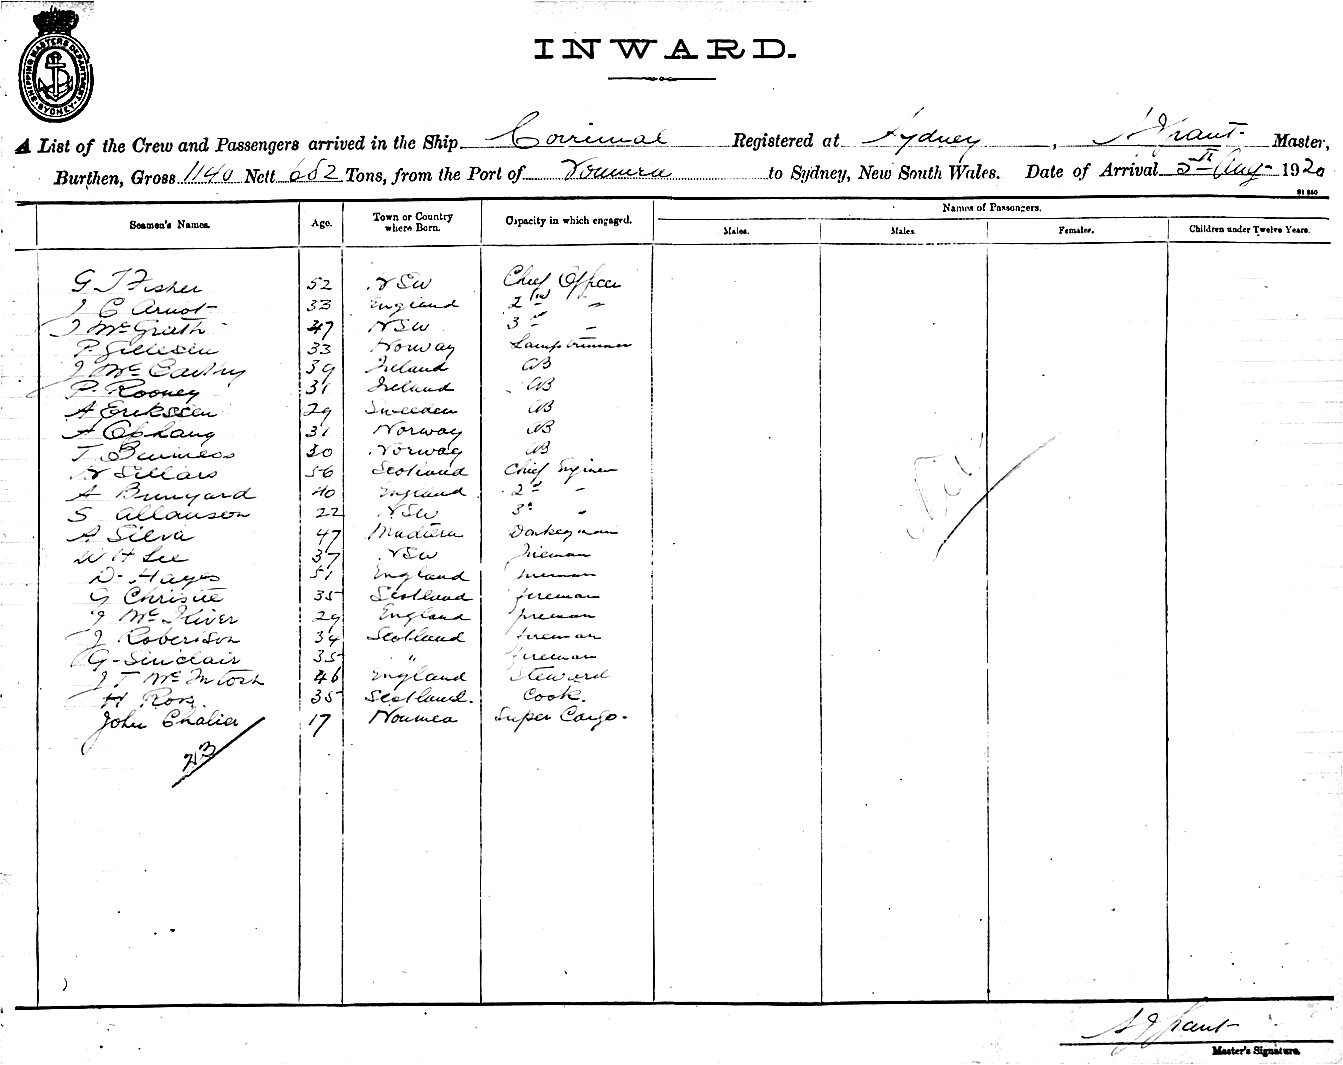 SHIPPING MASTERS DEPARTMENT SYDNEY
INWARD.
A List of the Crew and Passengers arrived in the Ship Corrimal Registered at Sydney, Grant Master,
Burthen, Gross 1140 Nett 682 Tons, from the Port of Noumea to Sydney, New South Wales. Date of Arrival Aug 1920
Seamen's Names. Age. Town or Country where Born. Capacity in which engaged. Names of Passengers.
Males. Males Females. Children under Twelve Years.
G T Fisher 52 NSW Chief Officer
J C Arnot 33 England 2nd "
J McGrath 47 NSW 3rd "
P. Gillesen 33 Norway Lamptrimmer
J McCarthy 39 Ireland AB
P. Rooney 31 Ireland AB
A Erikssen 29 Sweeden AB
A 31 Norway AB
T. 30 Norway AB
N Sillars 56 Scotland Chief Engineer
A Bunyard 40 England 2nd "
S Allanson 22 NSW 3rd "
A Silva 47 Madiera Donkeyman
W H Lee 37 NSW Fireman
D. Hayes 51 England fireman
G Christie 35 Scotland fireman
J McIliver 29 England fireman
J Robertson 34 Scotland fireman
G. Sinclair 35 " fireman
J T McIntosh 46 England Steward
H Ross. 35 Scotland. Cook.
John Chalier 17 Noumea Super Cargo.
23
Nil
Grant
Master's Signature.